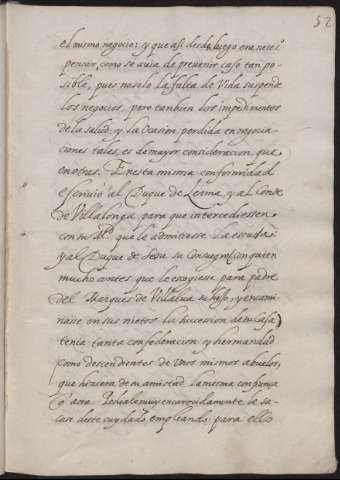 52
el mismo negocio: y que asi desde luego era neces.º
pensar, como se auia de preuenir caso tan po-
sible, pues no solo la falta de Vida suspende
los negocios, pero tanbien los impedimentos
de la salud; y la Ocasion perdida en negocia-
ciones tales, es de mayor consideracion que
en otras. En esta misma conformidad
escriuio al Duque de Lerma, y al Conde
de Villalonga, para que intercediessen
con su M.d que le admitiesse la escusa:
y al Duque de Sesa su Consuegro (con quien
mucho antes que le escogiese para padre
del Marques de Villalua su hijo, y encami-
nasse en sus nietos la succession de su Casa)
tenia tanta confederacion y hermandad
como descendientes de unos mismos abuelos,
que hiziera de su amistad la mesma confiança
q̃ aora. Pediale muy encarecidamente le sa-
case deste cuydado, empleando para ello